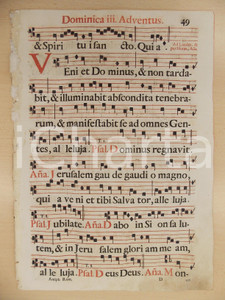 Dominica iii. Adventus. 49
& Spiri tu i san cto. Qui a
VEni et Do minus, & non tarda-
bit, & illuminabit abscondita tenebra-
rum, & manifestabit se ad omnes Gen-
tes, al le luja. Psal. Dominus regnavit.
Aña. Jerusalem gau de gaudi o magno,
qui a ve ni et ti bi Salva tor, alle luja.
Psal. Jubilate. Aña. Dabo in Si on sa lu-
tem, & in Jeru salem glori am me am,
al le luja. Psal. Deus Deus. Aña. Mon-